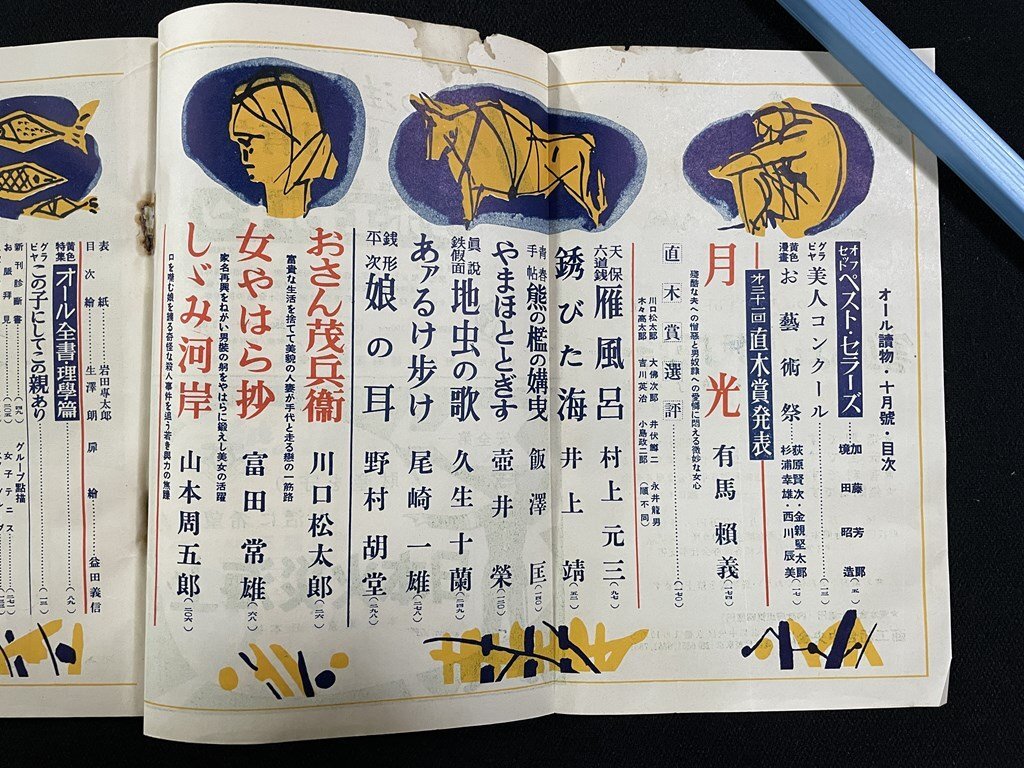 オール讀物・十月號・目次
オフセット ベスト・セラーズ 境田昭造 加藤芳郎(五)
グラビヤ 美人コンクール(一三)
黄色漫畫 お藝術祭 荻原賢次・金親堅太郎 杉浦幸雄・西川辰美(七九)
第三十二回直木賞発表
月光 有馬賴義(七四)
殘酷な夫への憎惡と男奴隷への愛情に悶える微妙な女心
直木賞選評(一七〇)
川口松太郎 大佛次郎 井伏鱒二 永井龍男
木々高太郎 吉川英治 小島政二郎 (順不同)
天保六道銭 雁風呂 村上元三(九七)
銹びた海 井上靖(五二)
青春手帖 熊の檻の媾曳 飯澤匡(一四〇)
やまほととぎす 壺井榮(一一〇)
眞説鉄假面 地虫の歌 久生十蘭(二四九)
あァるけ歩け 尾崎一雄(二七八)
銭形平次 娘の耳 野村胡堂(二九八)
おさん茂兵衞 川口松太郎(二六)
富貴な生活を捨てて美貌の人妻が手代と走る戀の一筋路
女やはら抄 富田常雄(六八)
家名再興をねがい男裝の躬をやはらに鍛えし美女の活躍
しゞみ河岸 山本周五郎(二〇六)
口を噤む娘を繞る奇怪な殺人事件を追う若き與力の焦躁
表紙 岩田専太郎
目次繪 生澤朗 扉繪 益田義信
黄色特集 オール全書・理學篇(八九)
グラビヤ この子にしてこの親あり(一三)
新刊診断書(四九) グループ點描
お脈拝見(二〇五) 女子テニス(二七)